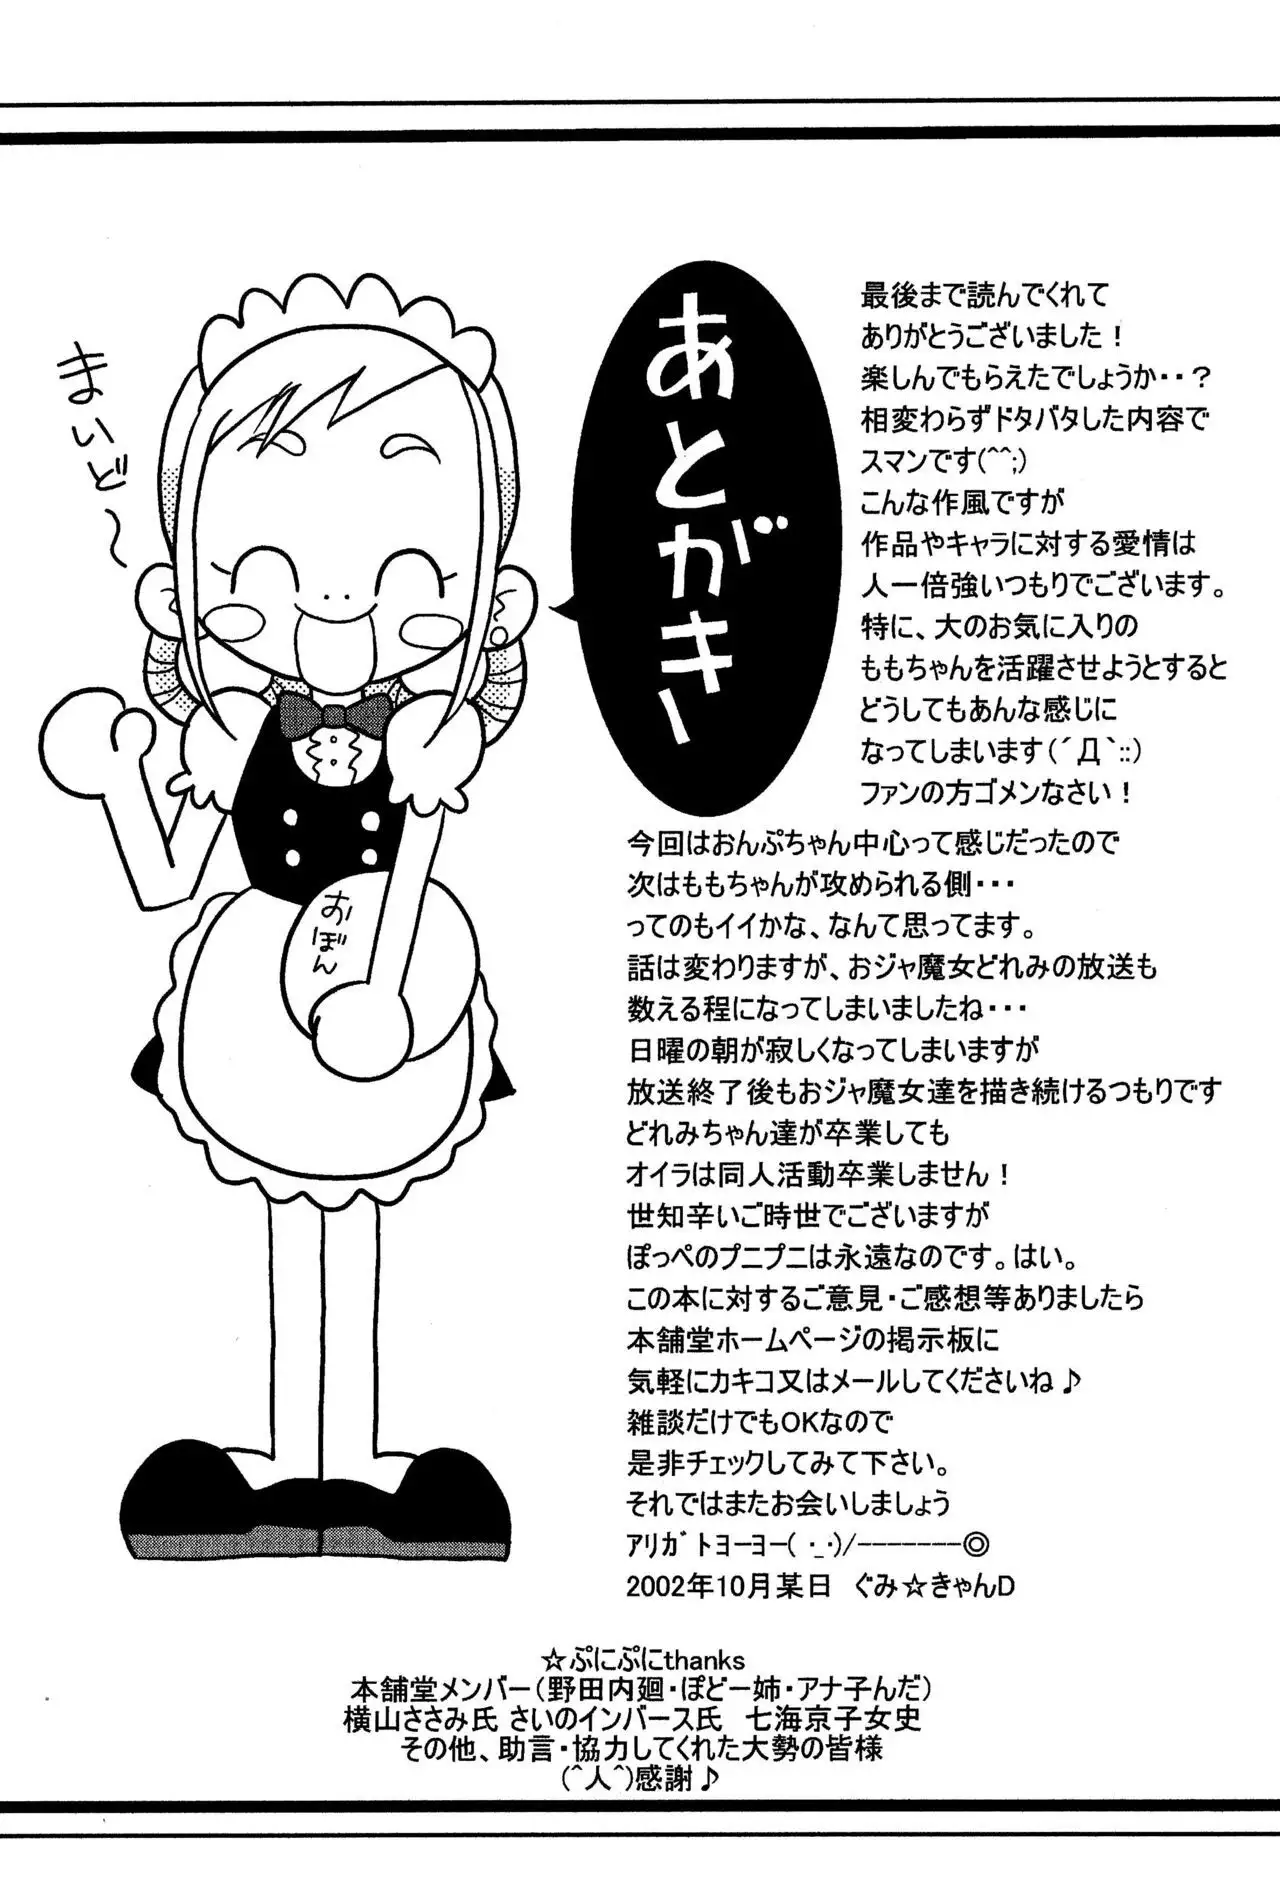 まいど～
あとがきー
おぼん
最後まで読んでくれて
ありがとうございました！
楽しんでもらえたでしょうか・・？
相変わらずドタバタした内容で
スマンです(^^;)
こんな作風ですが
作品やキャラに対する愛情は
人一倍強いつもりでございます。
特に、大のお気に入りの
ももちゃんを活躍させようとすると
どうしてもあんな感じに
なってしまいます(´Д`::)
ファンの方ゴメンなさい！
今回はおんぷちゃん中心って感じだったので
次はももちゃんが攻められる側・・・
ってのもイイかな、なんて思ってます。
話は変わりますが、おジャ魔女どれみの放送も
数える程になってしまいましたね・・・
日曜の朝が寂しくなってしまいますが
放送終了後もおジャ魔女達を描き続けるつもりです
どれみちゃん達が卒業しても
オイラは同人活動卒業しません！
世知辛いご時世でございますが
ぽっぺのプニプニは永遠なのです。はい。
この本に対するご意見・ご感想等ありましたら
本舗堂ホームページの掲示板に
気軽にカキコ又はメールしてくださいね♪
雑談だけでもOKなので
是非チェックしてみて下さい。
それではまたお会いしましょう
ｱﾘｶﾞﾄﾖｰﾖｰ( ･_･)/-------◎
2002年10月某日　ぐみ☆きゃんD
☆ぷにぷにthanks
本舗堂メンバー(野田内廻・ぽどー姉・アナ子んだ)
横山ささみ氏 さいのインバース氏　七海京子女史
その他、助言・協力してくれた大勢の皆様
(^人^)感謝♪